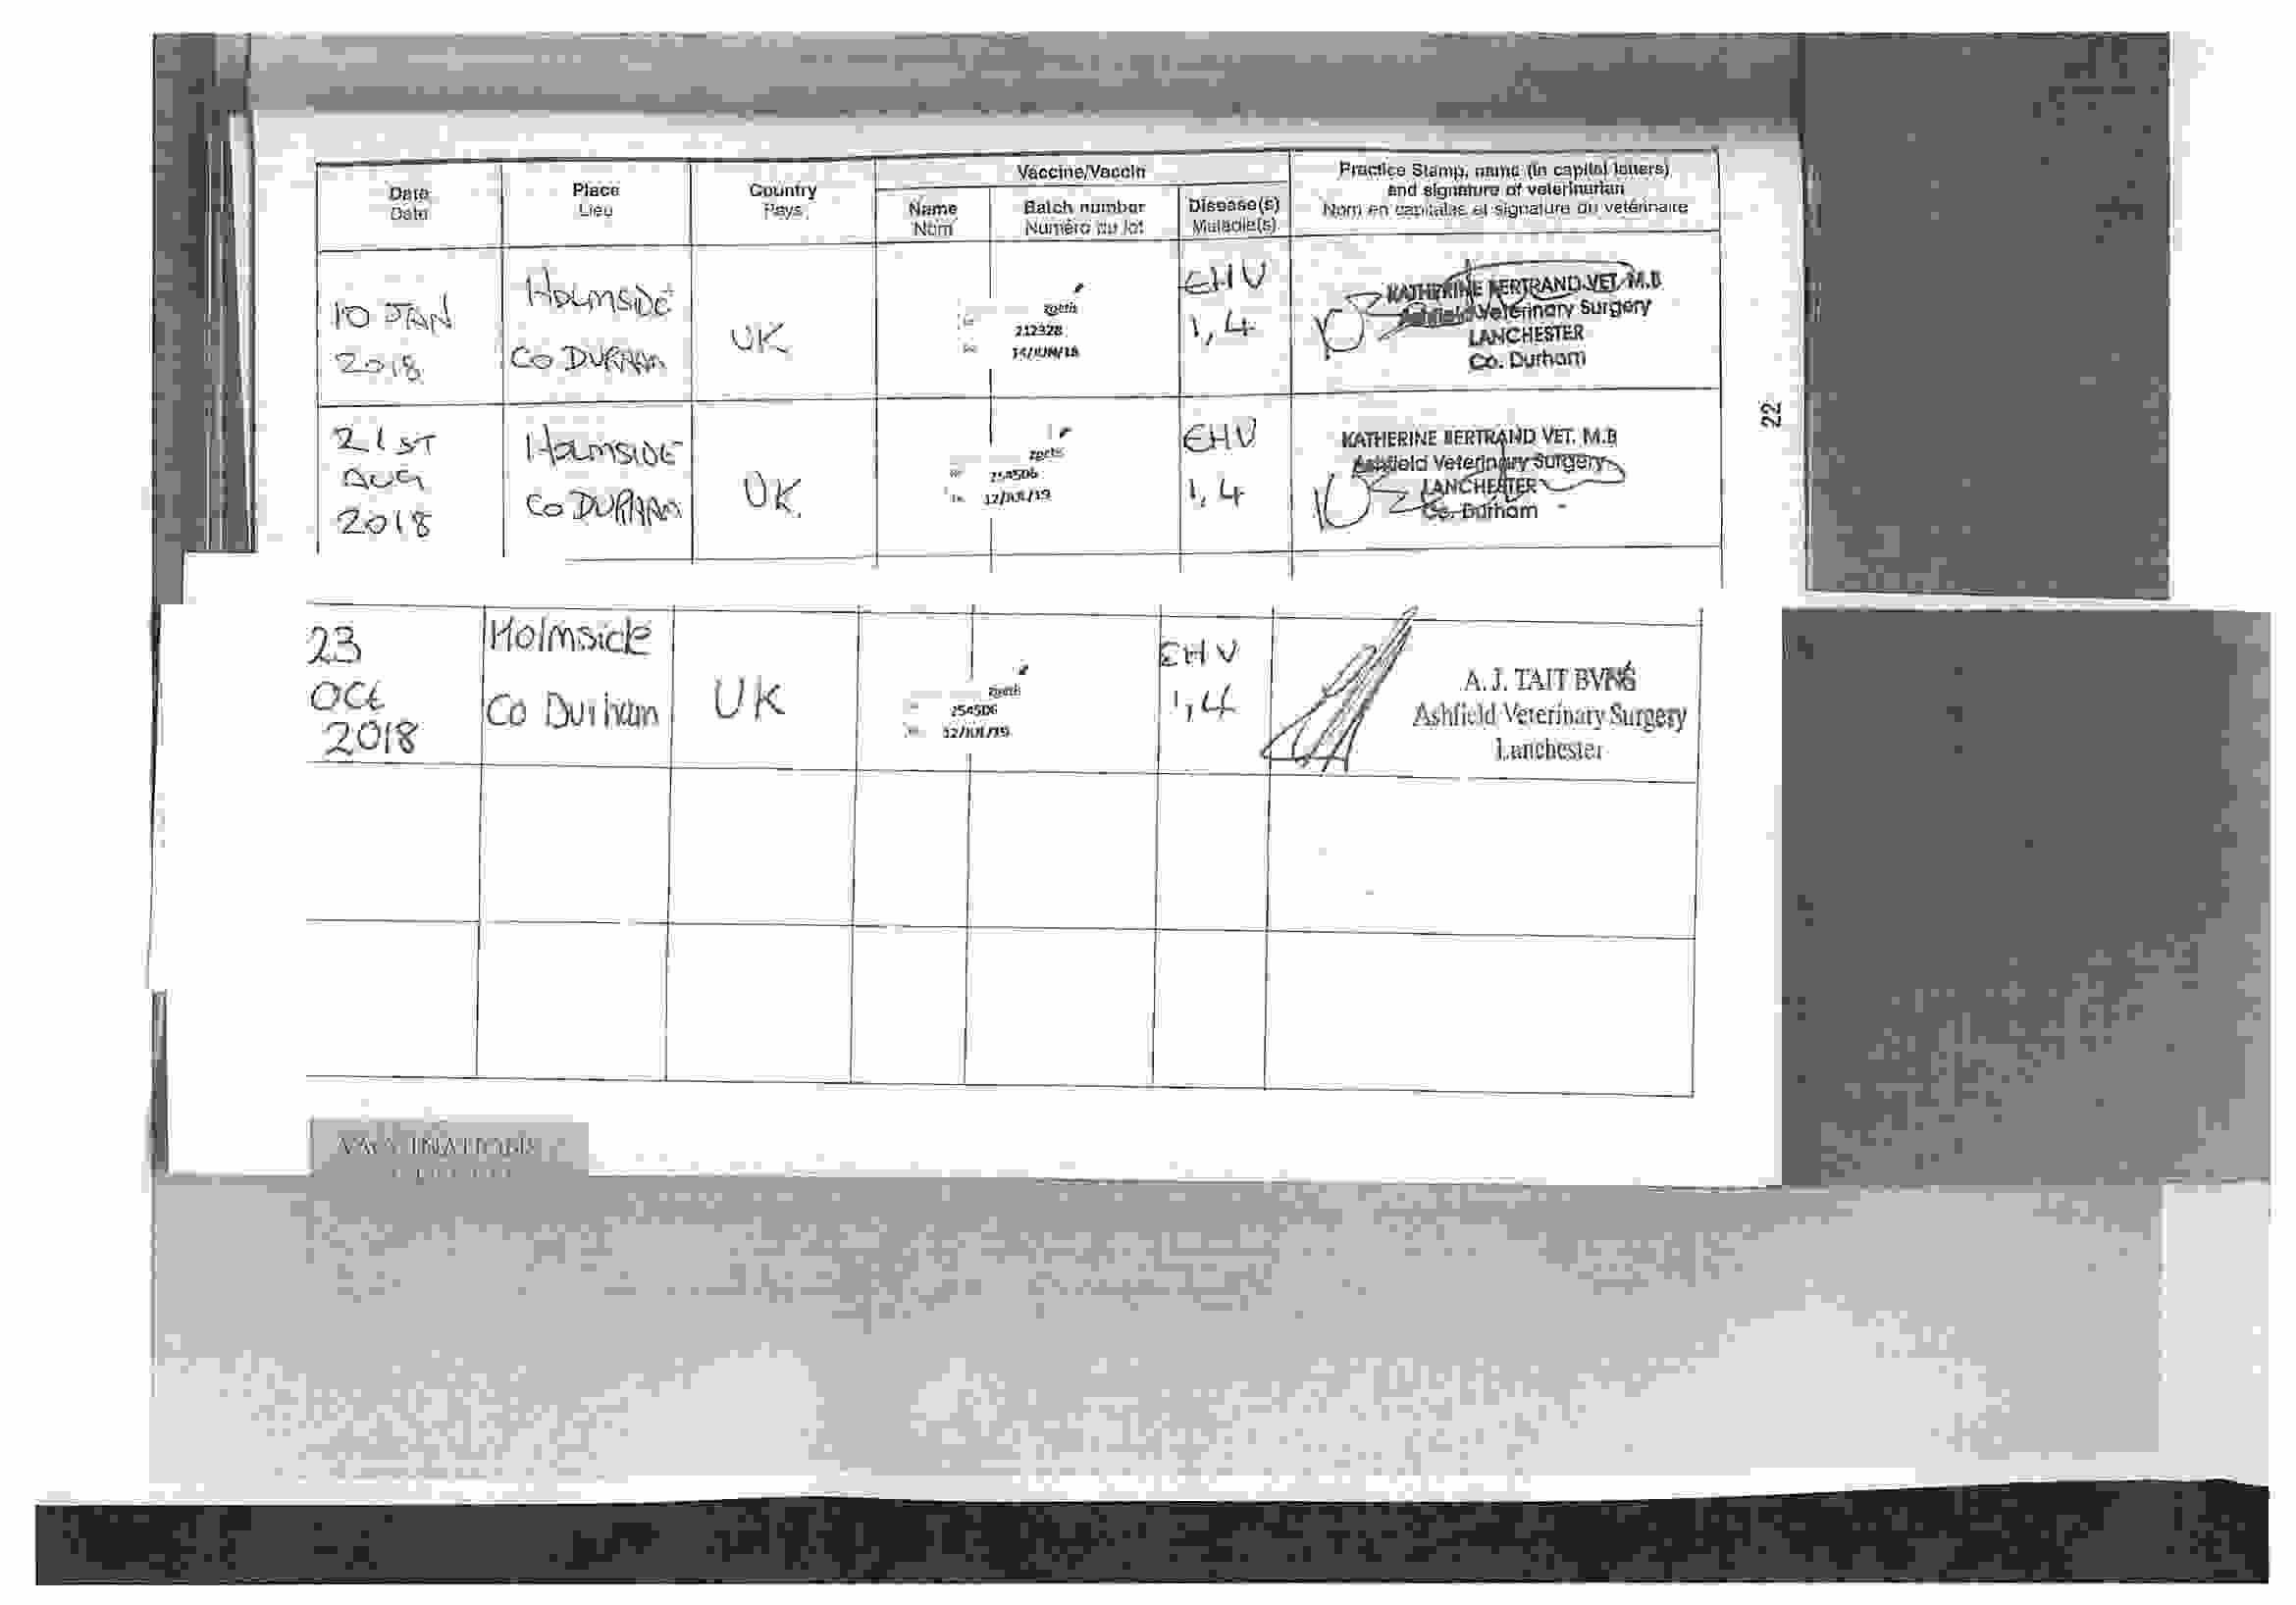 Date
Date
Place
Lieu
Country
Pays
Vaccine/Vaccin
Name
Nom
Batch number
Numéro du lot
Disease(s)
Maladie(s)
Practice Stamp, name (in capital letters)
and signature of veterinarian
Nom en capitales et signature du vétérinaire
10 JAN
2018
HOLMSIDE
CO DURHAM
UK
zoetis
212328
EHV
1,4
KATHERINE BERTRAND VET. M.B
Ashfield Veterinary Surgery
LANCHESTER
Co. Durham
21ST
AUG
2018
HOLMSIDE
CO DURHAM
UK
zoetis
12/JUL/19
EHV
1,4
KATHERINE BERTRAND VET. M.B
Ashfield Veterinary Surgery
LANCHESTER
Co. Durham
22
23
Oct
2018
Holmside
Co Durham
UK
zoetis
12/JUL/19
EHV
1,4
A. J. TAIT
Ashfield Veterinary Surgery
Lanchester
VACCINATIONS